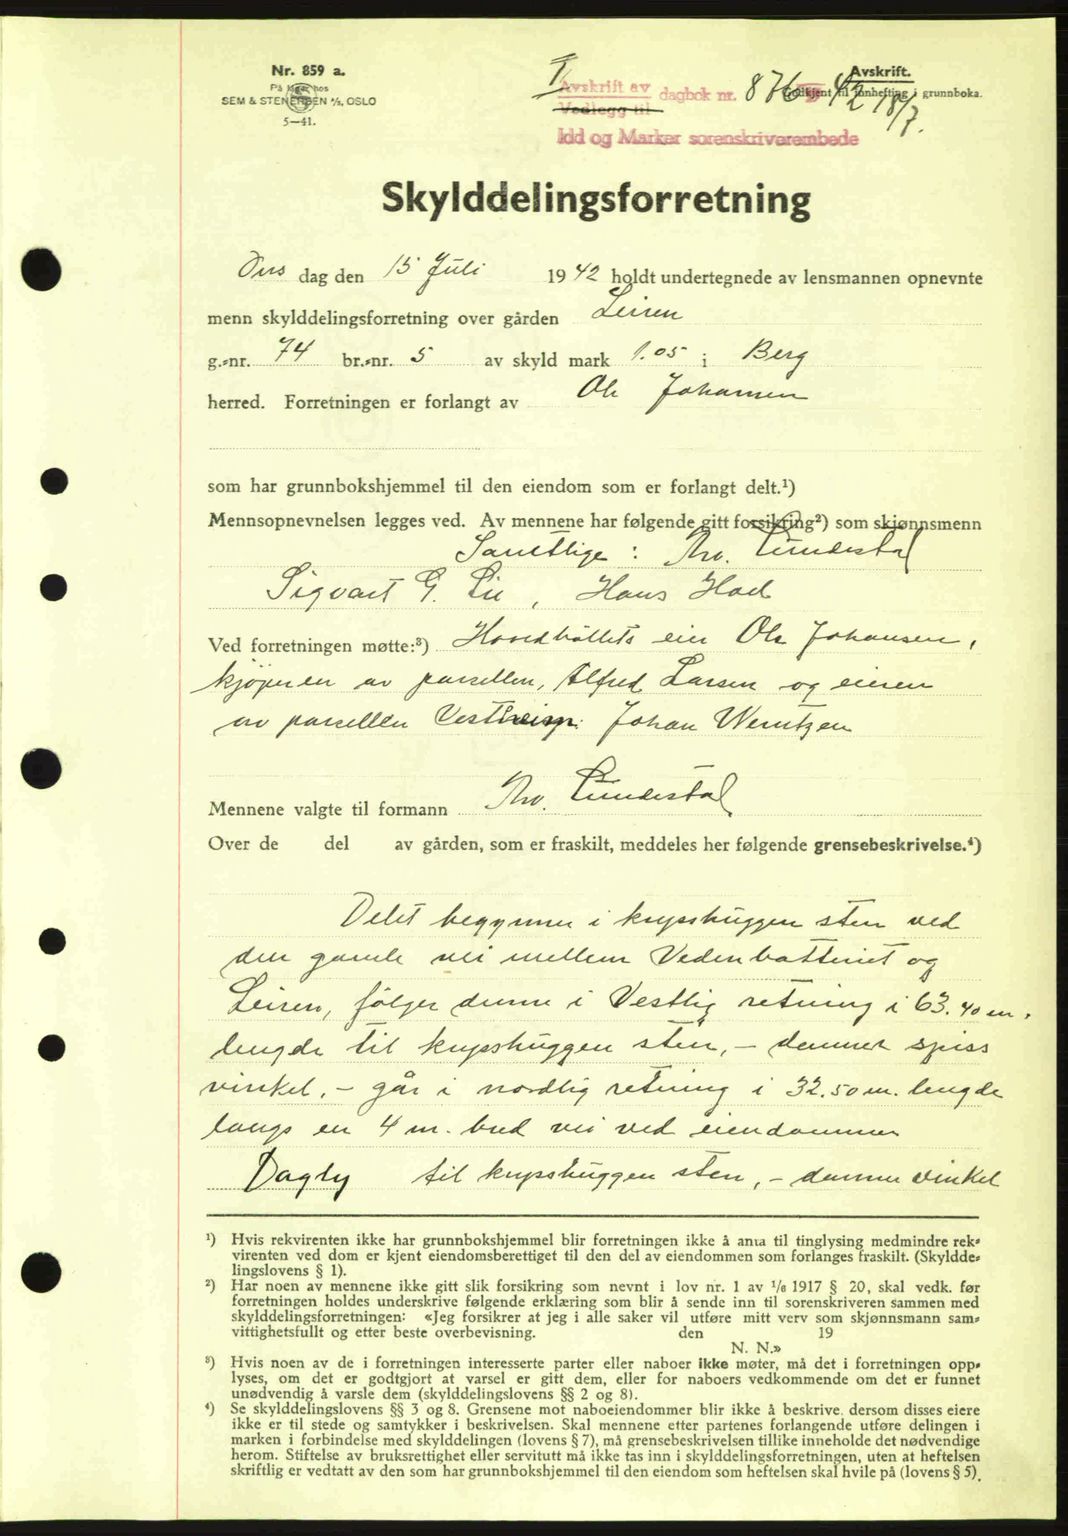 Nr. 859 a.
På lager hos
SEM & STENERSEN A/S, OSLO
5—41.
I
Avskrift av
Vedlegg til
dagbok nr. 876 /42 18/7.
Idd og Marker sorenskriverembede
Avskrift.
Godkjent til innhefting i grunnboka.
Skylddelingsforretning
Ons dag den 15 Juli 1942 holdt undertegnede av lensmannen opnevnte
menn skylddelingsforretning over gården Leiren
g.-nr. 74 br.-nr. 5 av skyld mark 1.05 i Berg
herred. Forretningen er forlangt av Ole Johansen
som har grunnbokshjemmel til den eiendom som er forlangt delt.¹)
Mennsopnevnelsen legges ved. Av mennene har følgende gitt forsikring²) som skjønnsmenn
Samtlige: Arv. Lundestad
Sigvart G. Lie, Hans Hod
Ved forretningen møtte:³) Hovedbøllets eier Ole Johansen,
kjøperen av parsellen, Alfred Larsen og eieren
av parsellen Vestheim: Johan Werntzen
Mennene valgte til formann Arv. Lundestad
Over de del av gården, som er fraskilt, meddeles her følgende grensebeskrivelse.⁴)
Delet begynner i krysshuggen sten ved
den gamle vei mellem Vedenbatteriet og
Leiren, følger denne i Vestlig retning i 63.40 m.
lengde til krysshuggen sten, – danner spiss
vinkel, – går i nordlig retning i 32.50 m. lengde
langs en 4 m. bred vei ved eiendommen
Dagly til krysshuggen sten, – danner vinkel
¹) Hvis rekvirenten ikke har grunnbokshjemmel blir forretningen ikke å anta til tinglysing medmindre rek-
virenten ved dom er kjent eiendomsberettiget til den del av eiendommen som forlanges fraskilt. (Skyldde-
lingslovens § 1).
²) Har noen av mennene ikke gitt slik forsikring som nevnt i lov nr. 1 av 1/6 1917 § 20, skal vedk. før
forretningen holdes underskrive følgende erklæring som blir å sende inn til sorenskriveren sammen med
skylddelingsforretningen: «Jeg forsikrer at jeg i alle saker vil utføre mitt verv som skjønnsmann sam-
vittighetsfullt og etter beste overbevisning. den 19
N. N.»
³) Hvis noen av de i forretningen interesserte parter eller naboer ikke møter, må det i forretningen opp-
lyses, om det er godtgjort at varsel er gitt dem, eller for naboers vedkommende om det er funnet
unødvendig å varsle dem (skylddelingslovens §§ 2 og 8).
⁴) Se skylddelingslovens §§ 3 og 8. Grensene mot naboeiendommer blir ikke å beskrive, dersom disses eiere
ikke er til stede og samtykker i beskrivelsen. Skal mennene etter partenes forlangende utføre delingen i
marken i forbindelse med skylddelingen (lovens § 7), må grensebeskrivelsen tillike inneholde det nødvendige
herom. Stiftelse av bruksrettighet eller servitutt må ikke tas inn i skylddelingsforretningen, uten at heftelsen
skriftlig er vedtatt av den som har grunnbokshjemmel til den eiendom som heftelsen skal hvile på (lovens § 5).